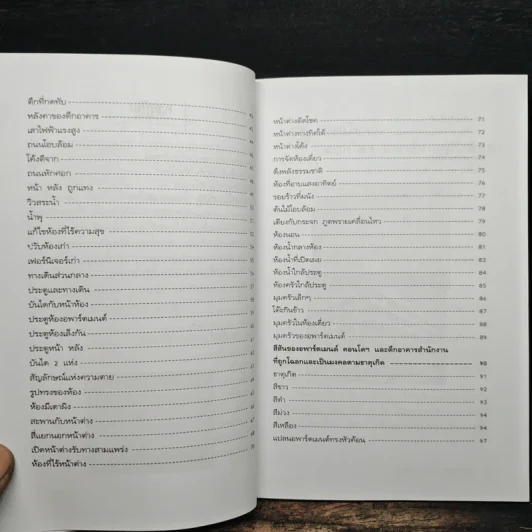 ตึกที่กดทับ
หลังคาของตึกอาคาร
เสาไฟฟ้าแรงสูง
ถนนโอบล้อม
โค้งตีจาก
ถนนหักศอก
หน้า หลัง ถูกแทง
วิวสระน้ำ
น้ำพุ
แก้ไขห้องที่ไร้ความสุข
ปรับห้องเก่า
เฟอร์นิเจอร์เก่า
ทางเดินส่วนกลาง
ประตูและทางเดิน
บันไดกับหน้าห้อง
ประตูห้องอพาร์ตเมนต์
ประตูห้องเล็งกัน
ประตูหน้า หลัง
บันได 2 แห่ง
สัญลักษณ์แห่งความตาย
รูปทรงของห้อง
ห้องมีเตาผิง
สะพานกับหน้าต่าง
สี่แยกนอกหน้าต่าง
เปิดหน้าต่างรับทางสามแพร่ง
ห้องที่ไร้หน้าต่าง
หน้าต่างดีดโชค 71
หน้าต่างทางทิศใต้ 72
หน้าต่างโค้ง 73
การจัดห้องเดี่ยว 74
ดึงพลังธรรมชาติ 75
ห้องที่อาบแสงอาทิตย์ 76
รอยร้าวที่ผนัง 77
ต้นไม้โอบล้อม 78
เตียงกับกระจก ภูตพรายเคลื่อนไหว 79
ห้องนอน 80
ห้องน้ำกลางห้อง 81
ห้องน้ำที่เปิดเผย 82
ห้องน้ำใกล้ประตู 84
ห้องครัวใกล้ประตู 85
มุมครัวเล็กๆ 86
โต๊ะกินข้าว 87
มุมครัวในห้องเดี่ยว 88
มุมครัวของอพาร์ตเมนต์ 89
สีสันของอพาร์ตเมนต์ คอนโดฯ และตึกอาคารสำนักงาน
ที่ถูกโฉลกและเป็นมงคลตามธาตุเกิด 90
ธาตุเกิด 91
สีขาว 92
สีดำ 93
สีม่วง 94
สีเหลือง 94
แปลนอพาร์ตเมนต์ทรงหัวค้อน 97